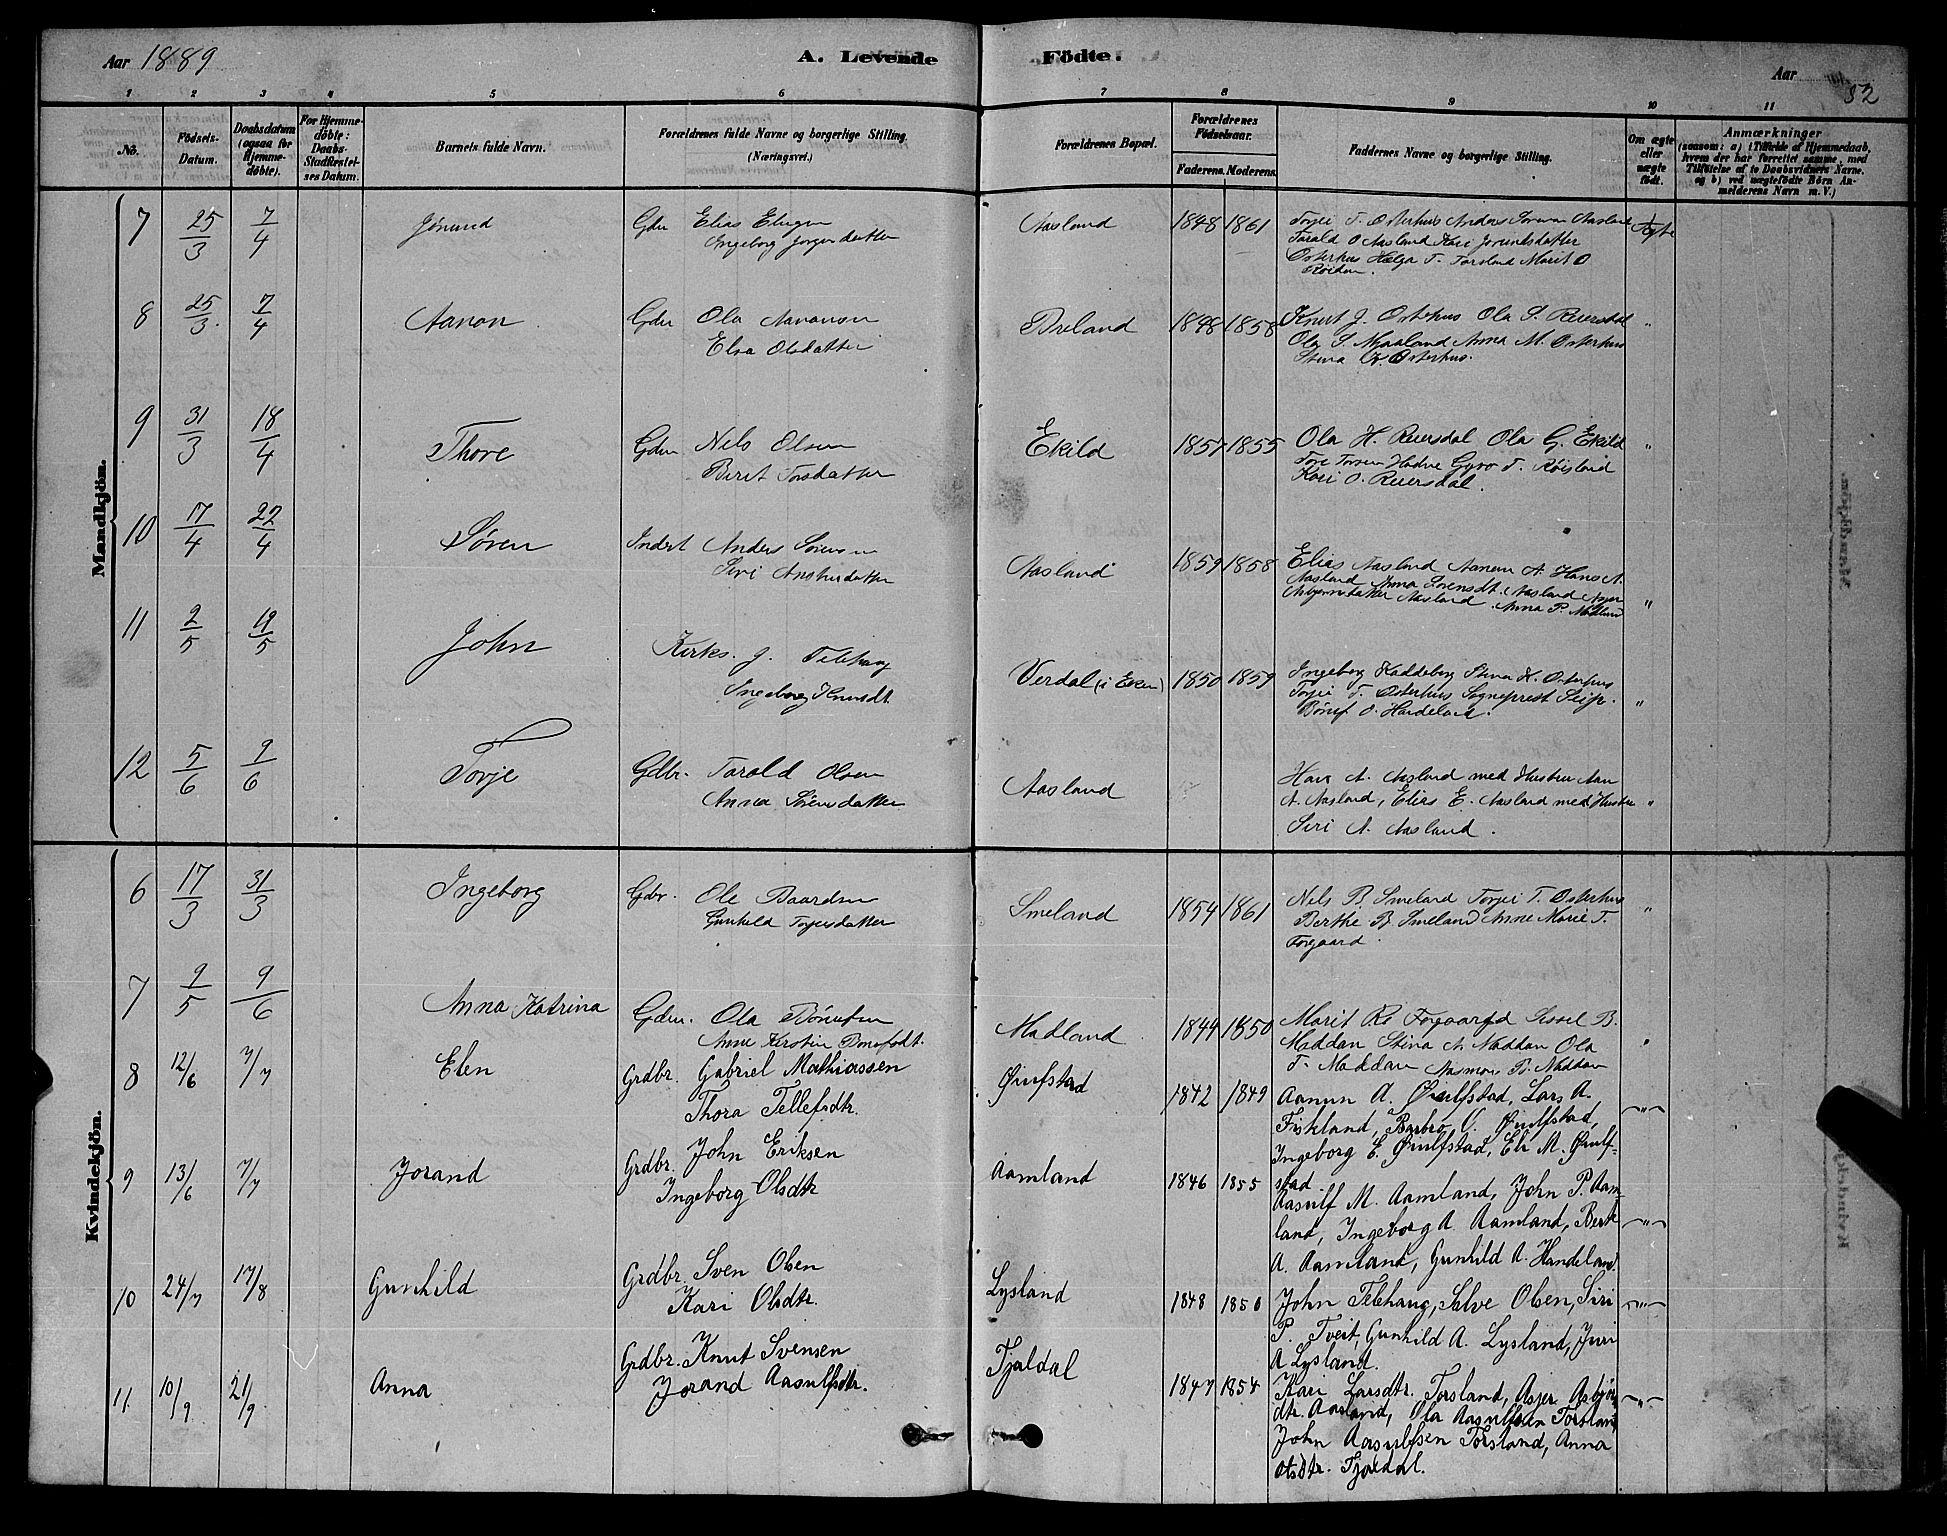 Aar 1889
A. Levende Födte.
Aar
32
1 2 3 4 5 6 7 8 9 10 11
No.
Födsels-Datum.
Daabsdatum (ogsaa for Hjemme-döbte).
For Hjemme-döbte: Daabs-Stadfæstel-ses Datum.
Barnets fulde Navn.
Forældrenes fulde Navne og borgerlige Stilling. (Næringsvei.)
Forældrenes Bopæl.
Forældrenes Födselsaar.
Faderens. Moderens.
Faddernes Navne og borgerlige Stilling.
Om ægte eller uægte födt.
Anmærkninger
(saasom: a) i Tilfælde af Hjemmedaab, hvem der har forrettet samme, med Tilföielse af to Daabsvidners Navne, og b) ved uægtefödte Börn An-melderens Navn m. V.)
Mandkjön.
7 25/3 7/4 Jørund Gdr Elias
Ingeborg Jørgensdatter
Aasland 1848 1861
Torjei T. Osterhus Anders Aasland Ægte
Tarald O Aasland Kari
Osterhus Helga T. Torsland Marit O
8 25/3 7/4 Aanon Gdr Ola Aanonsen
Elsa Olsdatter
Breland 1848 1858
Knut J. Osterhus Ola S. Reiersdal "
Ola S. Anna M. Osterhus
Stina K. Osterhus.
9 31/3 18/4 Thore Gdr Nels Olsen
Berit Torsdatter
Ekild 1857 1855
Ola H. Reiersdal Ola G. Ekild "
Tore Torsen Gyro T. Røisland
Kari O. Reiersdal.
10 17/4 22/4 Søren Inderst Anders Sørensen
Siri
Aasland 1859 1858
Elias Aasland Aanon A. Hans A.
Aasland Anna Sørensdt. Aasland Asjer
Asbjørnsdatter Aasland Anna P. "
11 2/5 19/5 John Kirkes. J. Telehaug
Ingeborg Knudsdt.
Verdal (i Eken) 1850 1859
Ingeborg Haddeberg Stina K. Osterhus
Torjei T. Osterhus Sogneprest
O. Handeland. "
12 5/6 9/6 Torje Gdbr. Tarald Olsen
Anna Sørensdatter
Aasland
Hans A. Aasland med Hustru
A. Aasland, Elias E. Aasland med Hustru "
Siri A. Aasland.
Kvindekjön.
6 17/3 31/3 Ingeborg Gdbr. Ole Baardsen
Gunhild Torjesdatter
Smeland 1854 1861
Nels B. Smeland Torjei T. Osterhus "
Berthe B Smeland Anne Marie T.
Forgaard.
7 9/5 9/6 Anna Katrina Gdr. Ola
Anne Kirstin
Madland 1844 1850
Marit Forgaard Sissel B.
Maddan Stina A. Maddan Ola "
T. Maddan Aasmon B. Maddan
8 12/6 7/7 Elen Grdbr. Gabriel Mathiassen
Thora Tellefsdtr.
Øiulfstad 1842 1849
Aanun A. Øiulfstad, Lars A.
Fiskland, Barbro O. Øiulfstad, "
Ingeborg E. Øiulfstad, Eli M. Øiulf-
stad.
9 13/6 7/7 Jorand Grdbr. John Eriksen
Ingeborg Olsdtr
Aamland 1846 1855
Aasulf M. Aamland, John P. Aam-
land, Ingeborg A Aamland, Berte "
A. Aamland, Gunhild A. Handeland.
10 24/7 17/8 Gunhild Grdbr. Sven Olsen
Kari Olsdtr.
Lysland 1848 1850
John Telehaug, Salve Olsen, Siri "
P. Tveit, Gunhild A. Lysland, Juri
A Lysland.
11 10/9 21/9 Anna Grdbr. Knut Svensen
Jorand Aasulfsdtr.
Tjaldal 1847 1854
Kari Larsdtr. Torsland, Asjer Asbjørns "
dtr. Aasland, Ola Aasulfsen Torsland
John Aasulfsen Torsland, Anna
Olsdtr. Tjaldal.